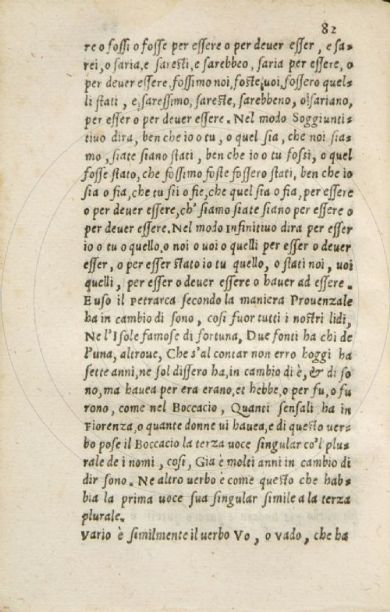 82
re o fossi o fosse per essere o per deuer esser, e sa-
rei, o saria, e saresti, e sarebbeo, saria per essere, o
per deuer essere, fossimo noi, foste, uoi, fossero quel-
li stati, e, saressimo, sareste, sarebbeno, o sariano,
per esser o per deuer essere. Nel modo Soggiunti-
tiuo dira, ben che io o tu, o quel sia, che noi sia-
mo, siate siano stati, ben che io o tu fossi, o quel
fosse stato, che fossimo foste fossero stati, ben che io
sia o fia, che tu sii o fie, che quel sia o fia, per essere
o per deuer essere, ch' siamo siate siano per essere o
per deuer essere. Nel modo Infinitiuo dira per esser
io o tu o quello, o noi o uoi o quelli per esser o deuer
esser, o per esser stato io tu quello, o stati noi, uoi
quelli, per esser o deuer essere o hauer ad essere.
Euso il Petrarca secondo la maniera Prouenzale
ha in cambio di sono, cosi fuor tutti i nostri lidi,
Ne l'Isole famose di fortuna, Due fonti ha chi de
l'una, altroue, Che s'al contar non erro hoggi ha
sette anni, ne sol differo ha, in cambio di è, & di so
no, ma hauea per era erano, et hebbe, o per fu, o fu
rono, come nel Boccacio, Quanti sensali ha in
Fiorenza, o quante donne ui hauea, e di questo uer-
bo pose il Boccacio la terza uoce singular co'l plu-
rale de i nomi, cosi, Gia è molti anni in cambio di
dir sono. Ne altro uerbo è come questo che hab-
bia la prima uoce sua singular simile a la terza
plurale.
Vario è similmente il uerbo Vo, o uado, che ha